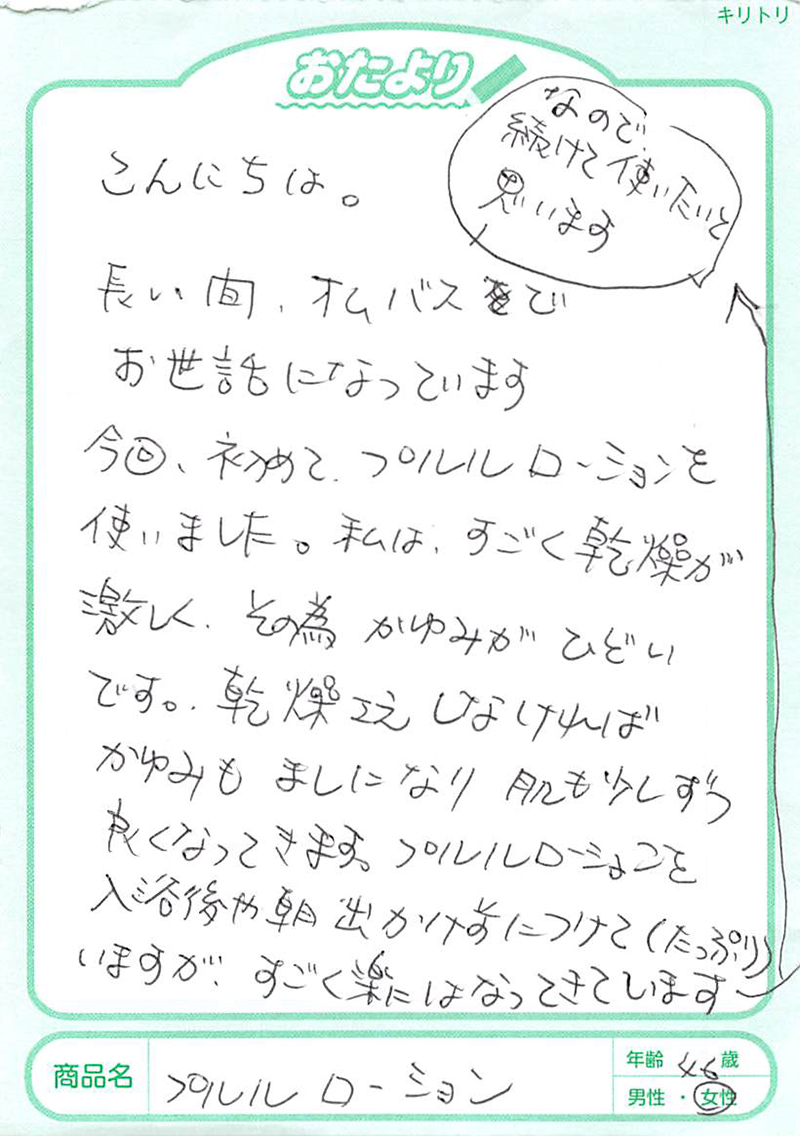 キリトリ
おたより
こんにちは。
長い間、オムバスで
お世話になっています
今回、初めて、プルルルローションを
使いました。私は、すごく乾燥が
激しく、その為 かゆみが ひどい
です。乾燥さえ しなければ
かゆみも ましになり 肌も少しずつ
良くなってきます。プルルルローションを
入浴後や朝 出かけ前につけて(たっぷり)
いますが、すごく楽にはなってきています
なので、
続けて使いたいと
思います
商品名 プルルル ローション
年齢 46歳
男性・女性